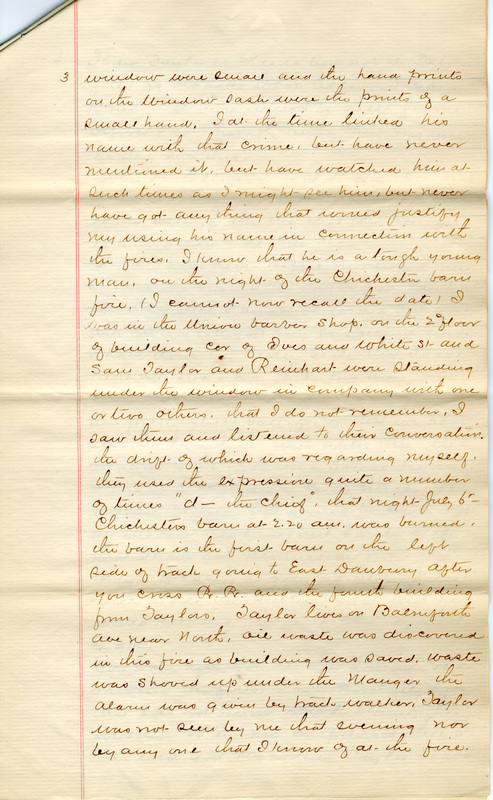 3 window were small and the hand prints
on the window sash were the prints of a
small hand. I at the time linked his
name with that crime, but have never
mentioned it, but have watched him at
such times as I might see him, but never
have got anything that would justify
my using his name in connection with
the fires. I know that he is a tough young
man. on the night of the Chichester barn
fire, (I cannot now recall the date) I
was in the Union barber shop, on the 2d floor
of building cor of Ives and White St and
Sam Taylor and Reinhart were standing
under the window in company with one
or two others, that I do not remember, I
saw them and listened to their conversation,
the drift of which was regarding myself,
they used the expressive quite a number
of times "d— the chief", that night July 6th
Chichesters barn at 2.20 am. was burned.
the barn is the first barn on the left
side of track going to East Danbury after
you cross R.R. and the fourth building
from Taylors. Taylor lives on Balmforth
ave near North. oil waste was discovered
in this fire as building was saved, waste
was shoved up under the Manger the
alarm was given by track walker, Taylor
was not seen by me that evening nor
by any one that I know of at the fire.